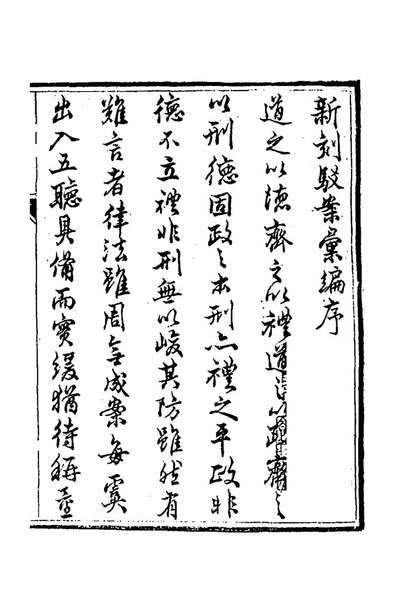 新刻駁案彙編序
道之以德齊之以禮道之以政齊之
以刑德固政之本刑亦禮之平政非
德不立禮非刑無以峻其防雖然有
難言者律法雖周全成案每虞
出入五聽具備而實緩猶待稱量